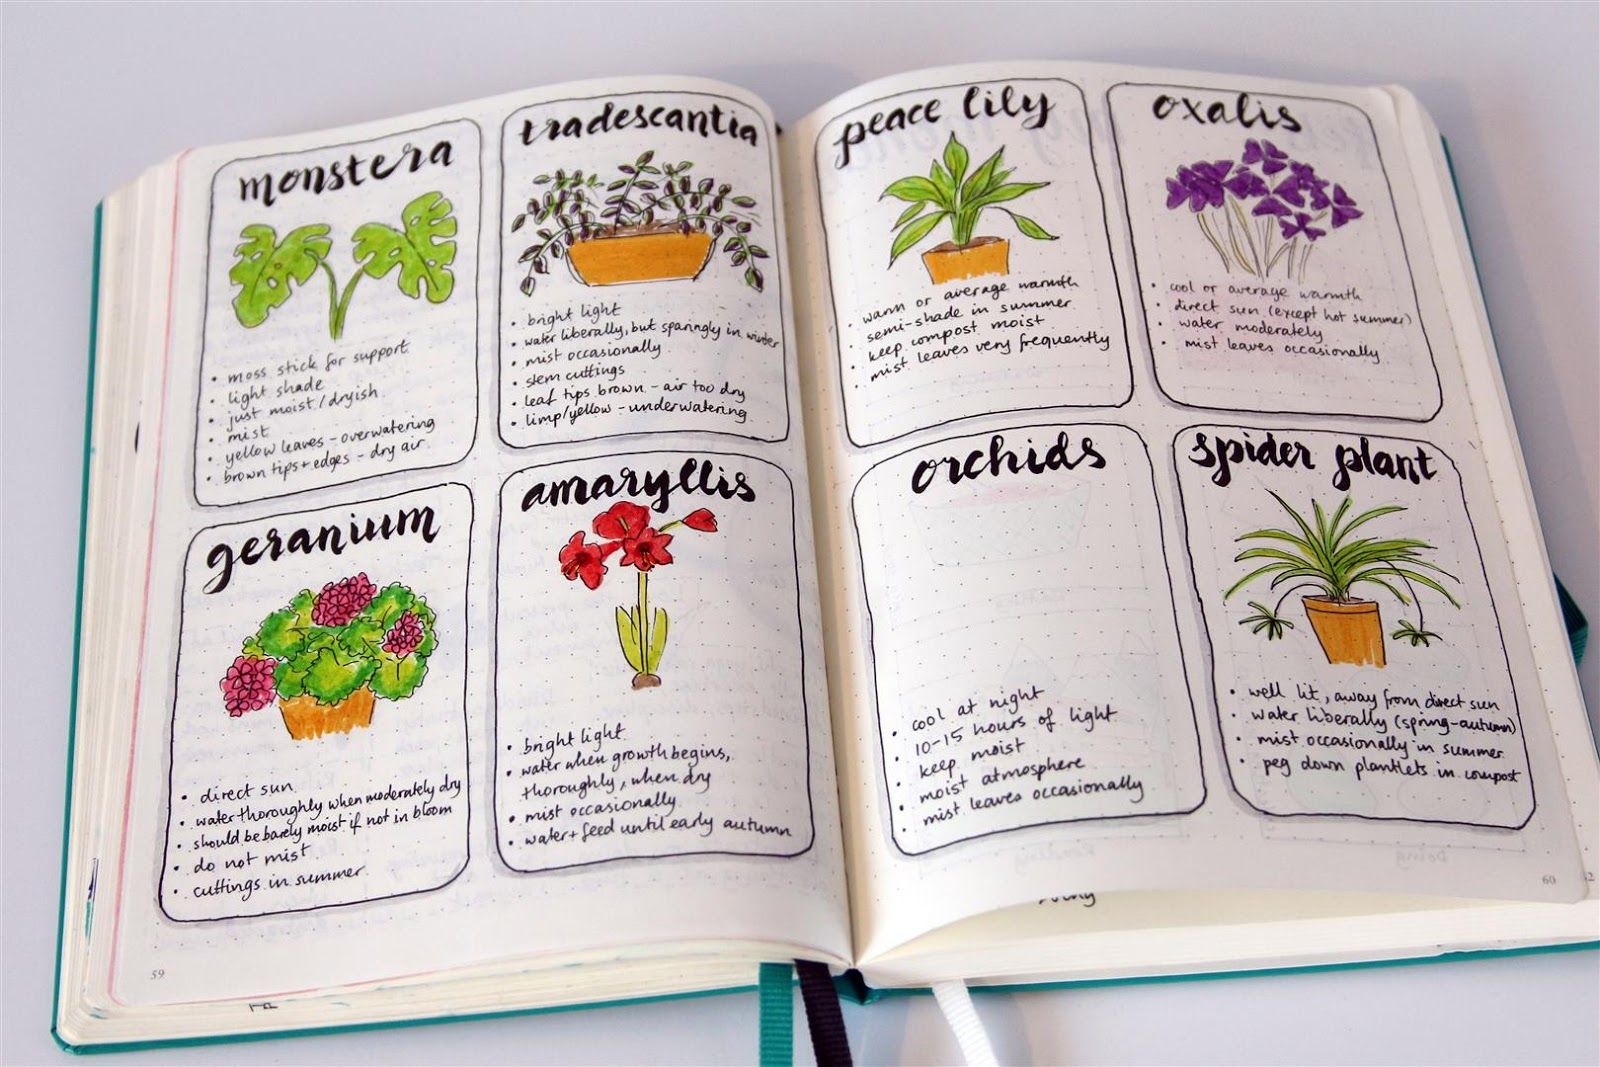 monstera
• moss stick for support
• light shade
• just moist/dryish
• mist
• yellow leaves - overwatering
• brown tips + edges - dry air
tradescantia
• bright light
• water liberally, but sparingly in winter
• mist occasionally
• stem cuttings
• leaf tips brown - air too dry
• limp/yellow - underwatering
geranium
• direct sun
• water thoroughly when moderately dry
• should be barely moist if not in bloom
• do not mist
• cuttings in summer
amaryllis
• bright light
• water when growth begins,
thoroughly, when dry
• mist occasionally
• water + feed until early autumn
59
peace lily
• warm or average warmth
• semi-shade in summer
• keep compost moist
• mist leaves very frequently
oxalis
• cool or average warmth
• direct sun (except hot summer)
• water moderately
• mist leaves occasionally
orchids
• cool at night
• 10-15 hours of light
• keep moist
• moist atmosphere
• mist leaves occasionally
spider plant
• well lit, away from direct sun
• water liberally (spring-autumn)
• mist occasionally in summer
• peg down plantlets in compost
60